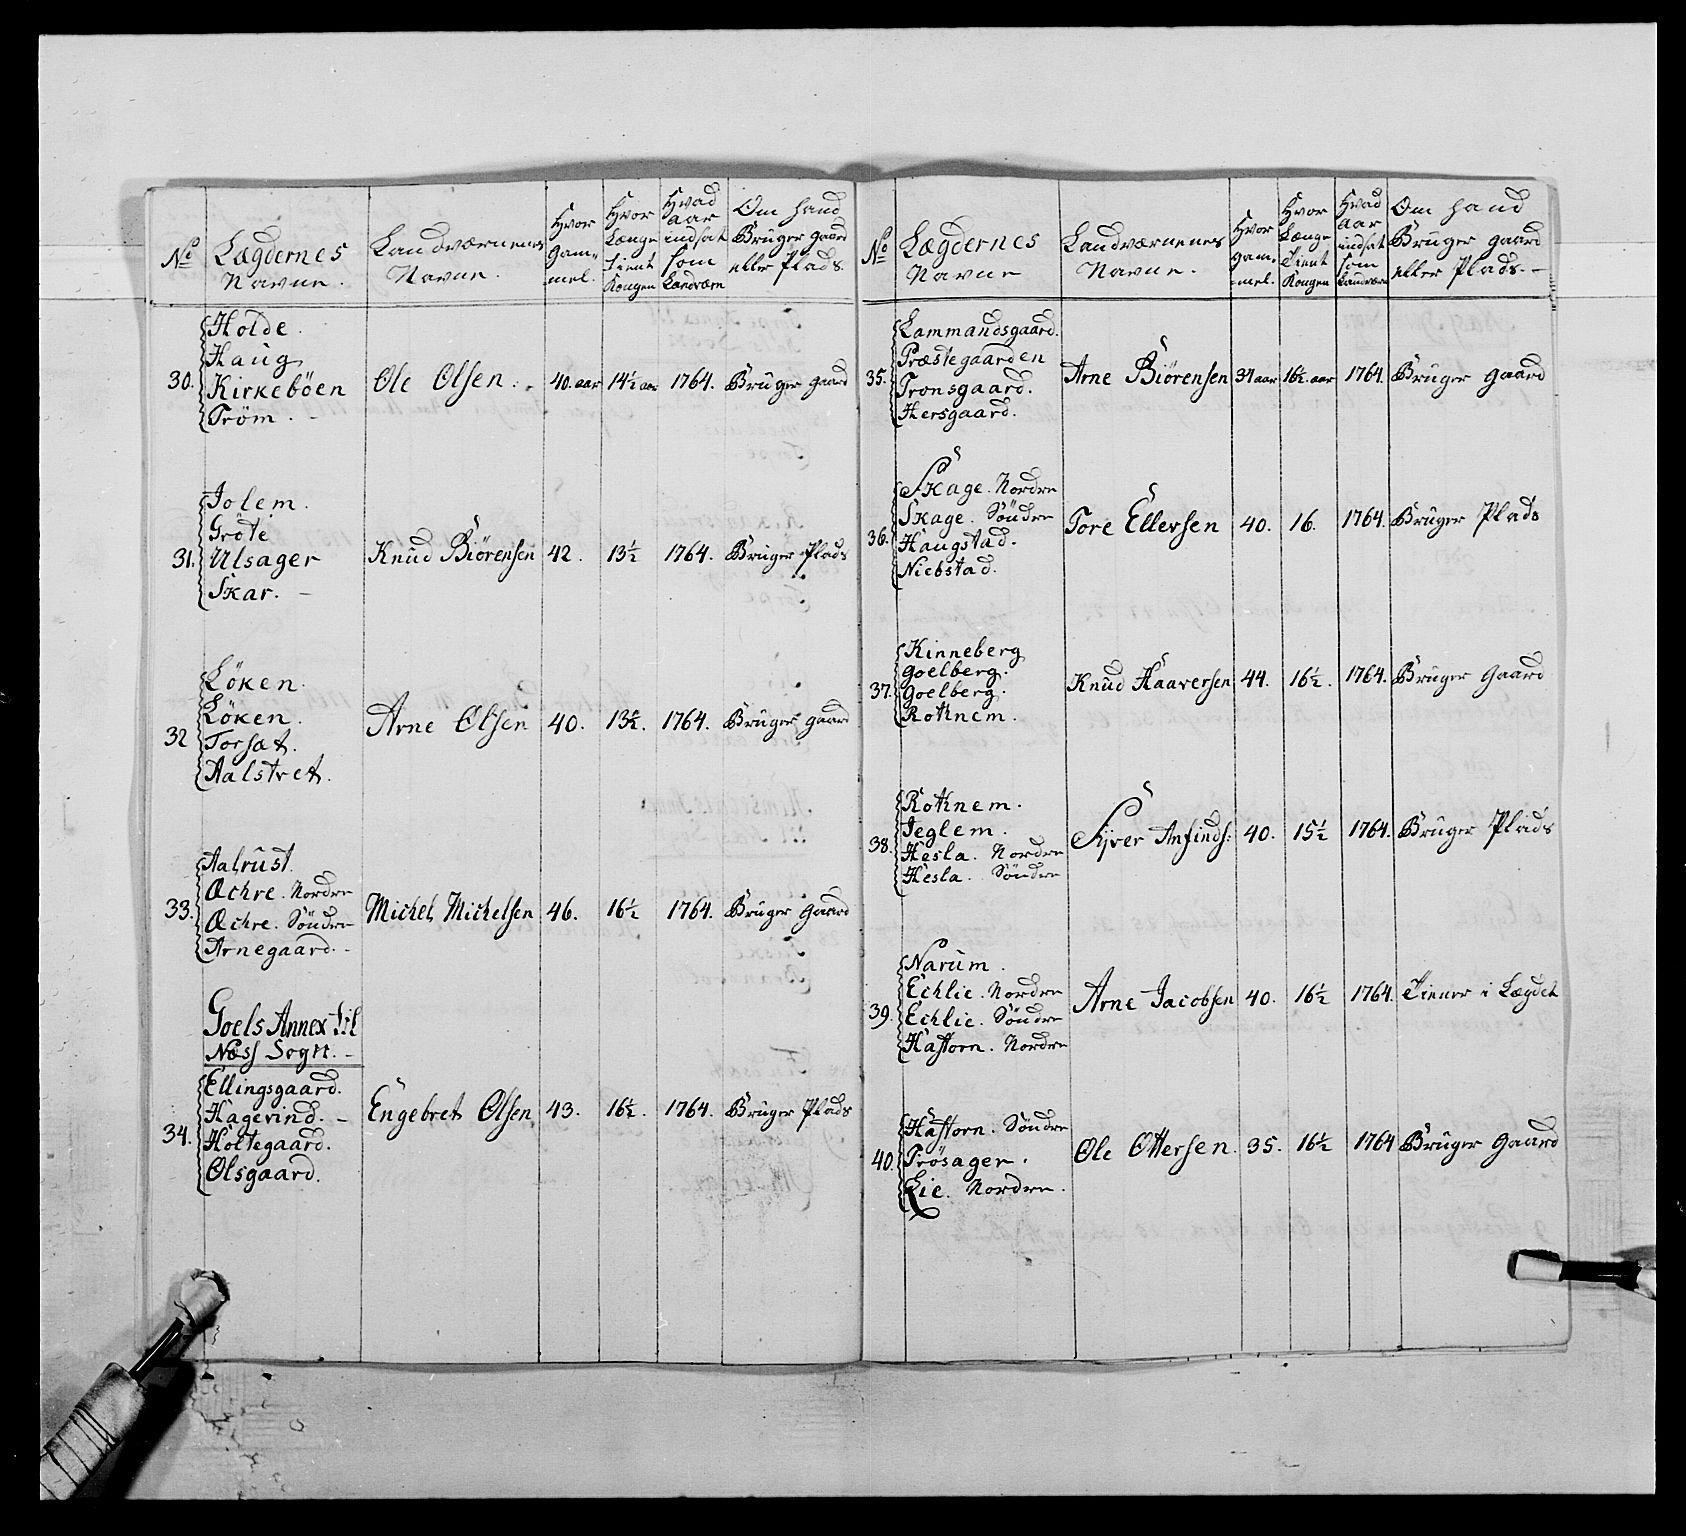 No
Lægdernes
Navne.
Landværnenes
Navne.
Hvor
gam-
mel.
Hvor
Længe
Tient
Kongen
Hvad
aar
indsat
som
Landværn
Om hand
Bruger gaard
eller Plads.
Holde.
Haug
30. Kirkebøen Ole Olsen. 40. aar 14½ aar 1764. Bruger gaard
Trøm. -
Jolem.
Grøte
31. Ulsager Knud Biörensen 42. 13½ 1764. Bruger Plads
Skar. -
Løken.
Løken.
32 Torsat. Arne Olsen 40. 13½. 1764. Bruger gaard
Aalstvet.
Aalrust.
Øchre. Nordre
33. Øchre. Søndre Michel Michelsen 46. 16½ 1764. Bruger Gaard
Arnegaard. -
Goels Annex til
Næss Sogn. -
Ellingsgaard.
Hagevind. -
34. Holtegaard. Engebret Olsen 43. 16½. 1764. Bruger Plads
Olsgaard.
No
Lægdernes
Navne
Landværnenes
Navne.
Hvor
gam-
mel.
Hvor
Længe
Tient
Kongen
Hvad
aar
indsat
som
Landværn
Om hand
Bruger gaard
eller Plads. -
Lammandsgaard.
Præstegaarden
35. Tronsgaard. Arne Biörensen 34 aar 16½. aar 1764. Bruger gaard
Hersgaard.
Skage. Nordre
Skage. Søndre
36. Haugstad. Tore Ellersen 40. 16. 1764. Bruger Plads
Niebstad.
Kinneberg
Goelberg.
37. Goelberg. Knud Haaversen 44. 16½. 1764. Bruger Gaard
Rotknem.
Rotknem.
Jeglem.
38. Hesla. Nordre Syver Anfinds: 40. 15½ 1764. Bruger Plads
Hesla. Søndre
Narum.
Echlie. Nordre
39. Echlie. Søndre Arne Jacobsen 40. 16½ 1764. Tiener i Lægdet
Hastorn. Nordre
Hastorn. Søndre
40. Trøsager. Ole Ottersen. 35. 16½ 1764 Bruger Gaard
Lie. Nordre.